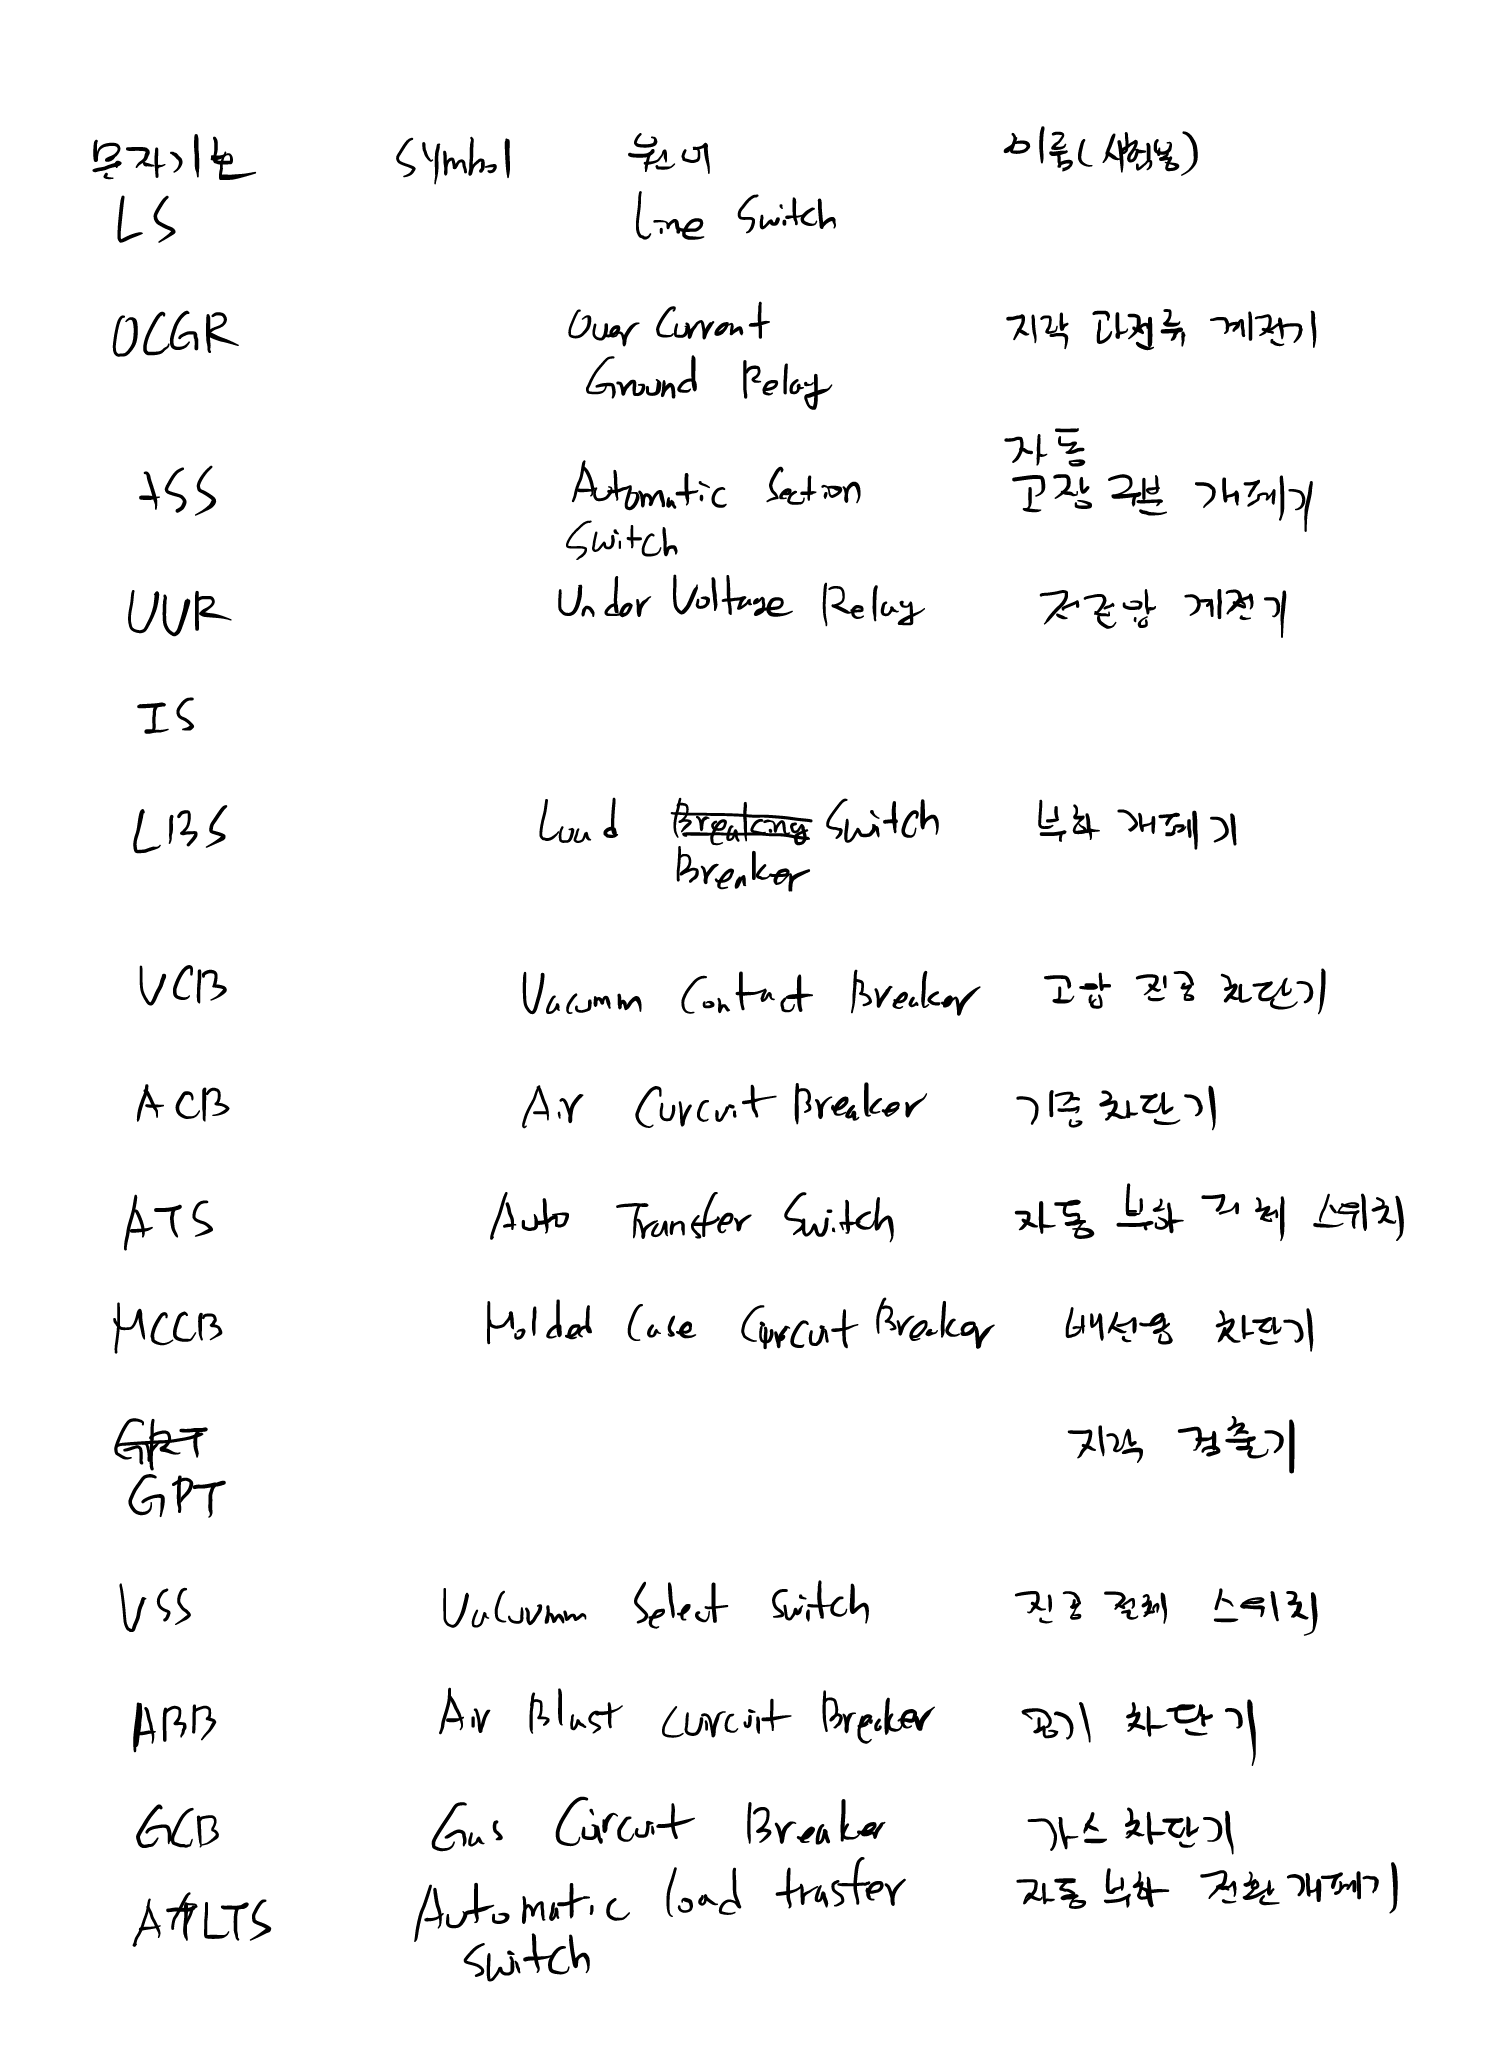 문자기호 Symbol 원어 이름(시험용)
LS Line Switch
OCGR Over Current 지락 과전류 계전기
Ground Relay
자동
ASS Automatic Section 고장 구분 개폐기
Switch
UVR Under Voltage Relay 저전압 계전기
IS
LBS Load Breaking Switch 부하 개폐기
Breaker
VCB Vacumm Contact Breaker 고압 진공 차단기
ACB Air Curcuit Breaker 기중 차단기
ATS Auto Transfer Switch 자동 부하 절체 스위치
MCCB Molded Case Circuit Breaker 배선용 차단기
GRT 지락 검출기
GPT
VSS Vacuumm Select Switch 진공 절체 스위치
ABB Air Blast Curcuit Breaker 공기 차단기
GCB Gas Circuit Breaker 가스 차단기
ALTS Automatic load trasfer 자동 부하 전환개폐기
switch